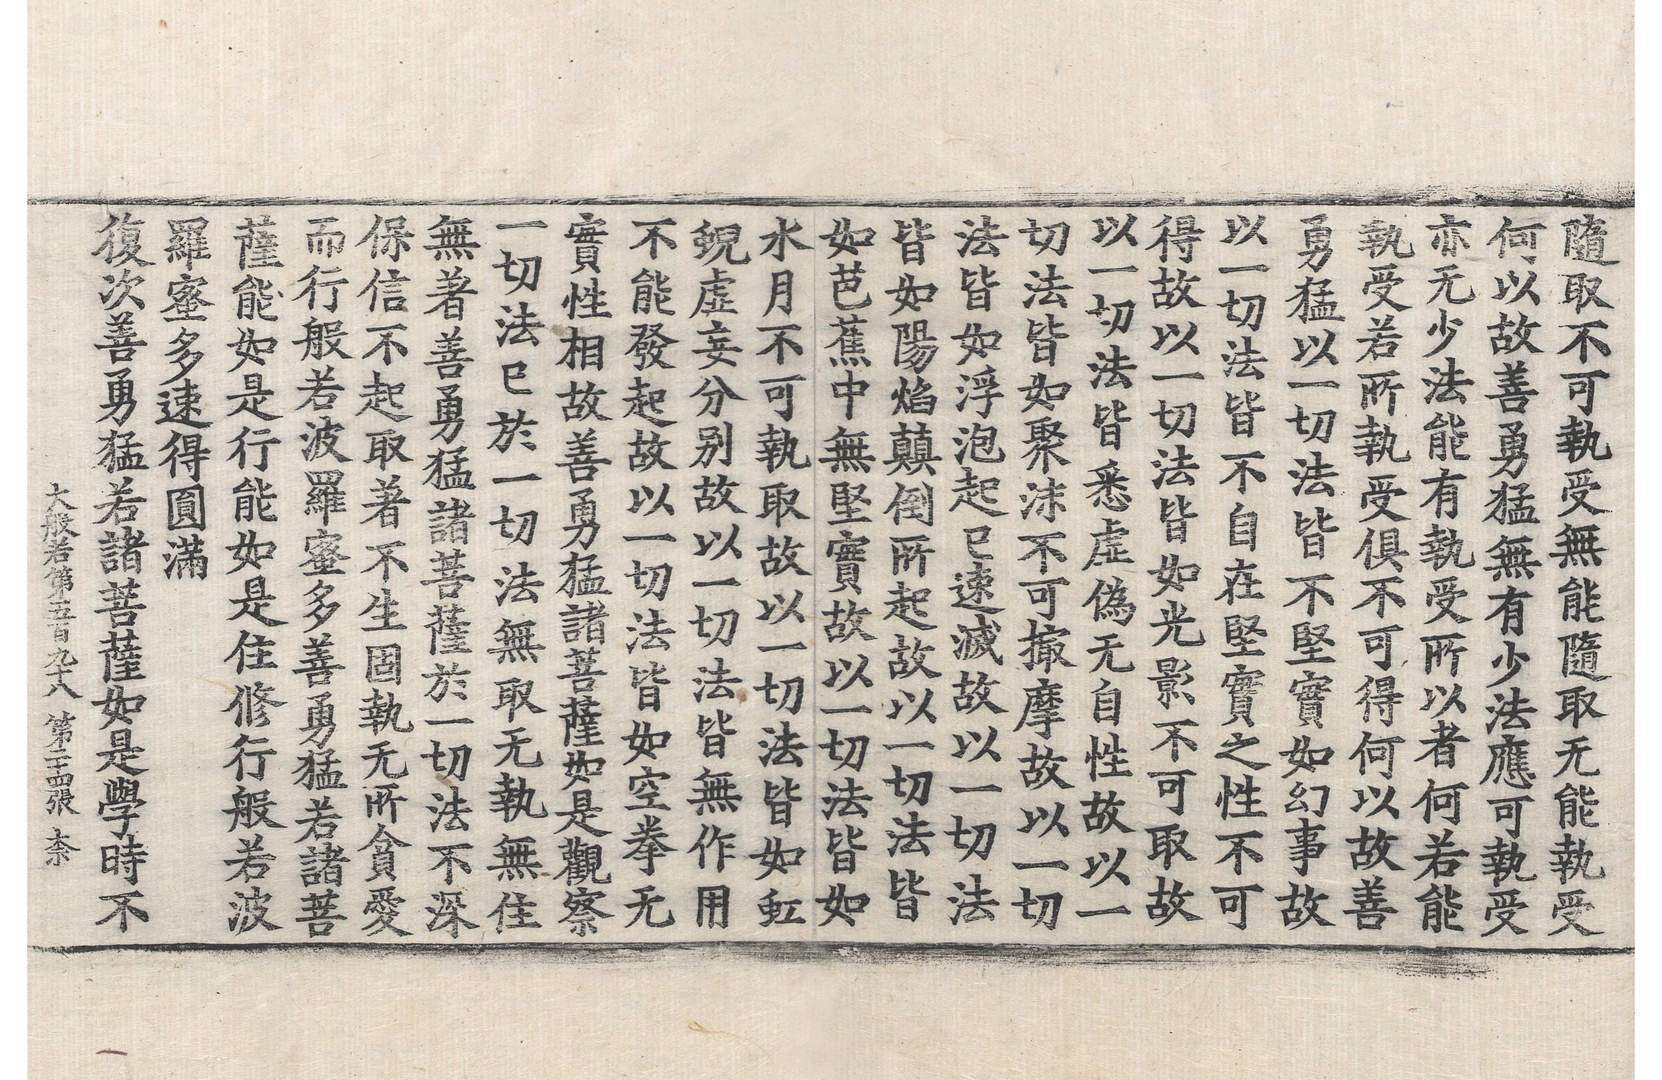 隨取不可執受無能隨取无能執受
何以故善勇猛無有少法應可執受
亦无少法能有執受所以者何若能
執受若所執受俱不可得何以故善
勇猛以一切法皆不堅實如幻事故
以一切法皆不自在堅實之性不可
得故以一切法皆如光影不可取故
以一切法皆悉虛偽无自性故以一
切法皆如聚沫不可撮摩故以一切
法皆如浮泡起已速滅故以一切法
皆如陽焰顛倒所起故以一切法皆
如芭蕉中無堅實故以一切法皆如
水月不可執取故以一切法皆如虹
蜺虛妄分別故以一切法皆無作用
不能發起故以一切法皆如空拳无
實性相故善勇猛諸菩薩如是觀察
一切法已於一切法無取无執無住
無著善勇猛諸菩薩於一切法不深
保信不起取著不生固執无所貪愛
而行般若波羅蜜多善勇猛若諸菩
薩能如是行能如是住修行般若波
羅蜜多速得圓滿
復次善勇猛若諸菩薩如是學時不
大般若第五百九十八 第二十四張 柰